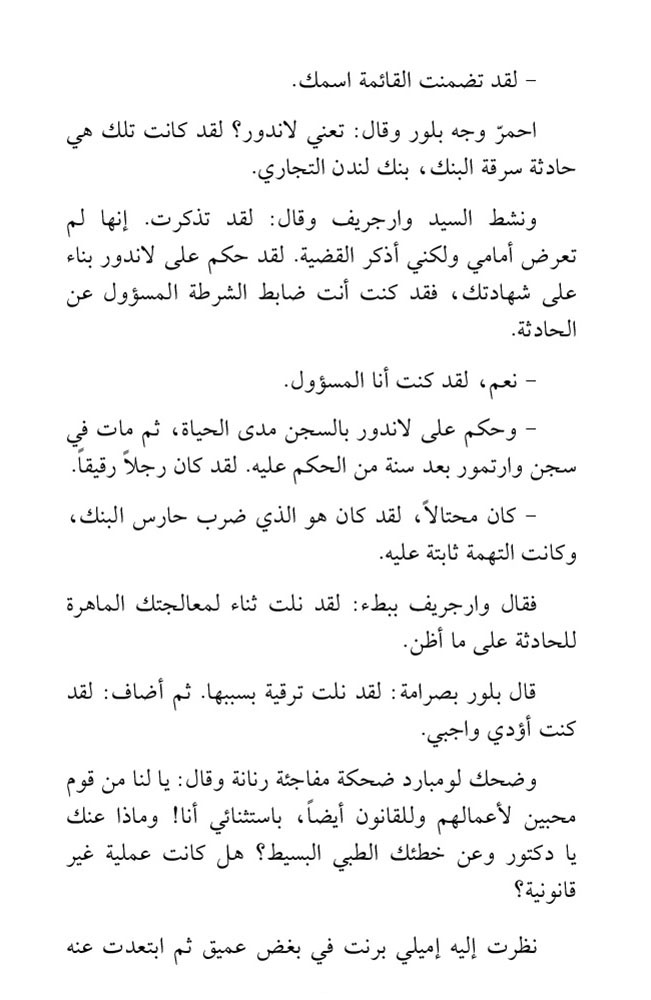 – لقد تضمنت القائمة اسمك.
احمرّ وجه بلور وقال: تعني لاندور؟ لقد كانت تلك هي
حادثة سرقة البنك، بنك لندن التجاري.
ونشط السيد وارجريف وقال: لقد تذكرت. إنها لم
تعرض أمامي ولكني أذكر القضية. لقد حكم على لاندور بناء
على شهادتك، فقد كنت أنت ضابط الشرطة المسؤول عن
الحادثة.
– نعم، لقد كنت أنا المسؤول.
– وحكم على لاندور بالسجن مدى الحياة، ثم مات في
سجن وارتمور بعد سنة من الحكم عليه. لقد كان رجلاً رقيقاً.
– كان محتالاً، لقد كان هو الذي ضرب حارس البنك،
وكانت التهمة ثابتة عليه.
فقال وارجريف ببطء: لقد نلت ثناء لمعالجتك الماهرة
للحادثة على ما أظن.
قال بلور بصرامة: لقد نلت ترقية بسببها. ثم أضاف: لقد
كنت أؤدي واجبي.
وضحك لومبارد ضحكة مفاجئة رنانة وقال: يا لنا من قوم
محبين لأعمالهم وللقانون أيضاً، باستثنائي أنا! وماذا عنك
يا دكتور وعن خطئك الطبي البسيط؟ هل كانت عملية غير
قانونية؟
نظرت إليه إميلي برنت في بغض عميق ثم ابتعدت عنه